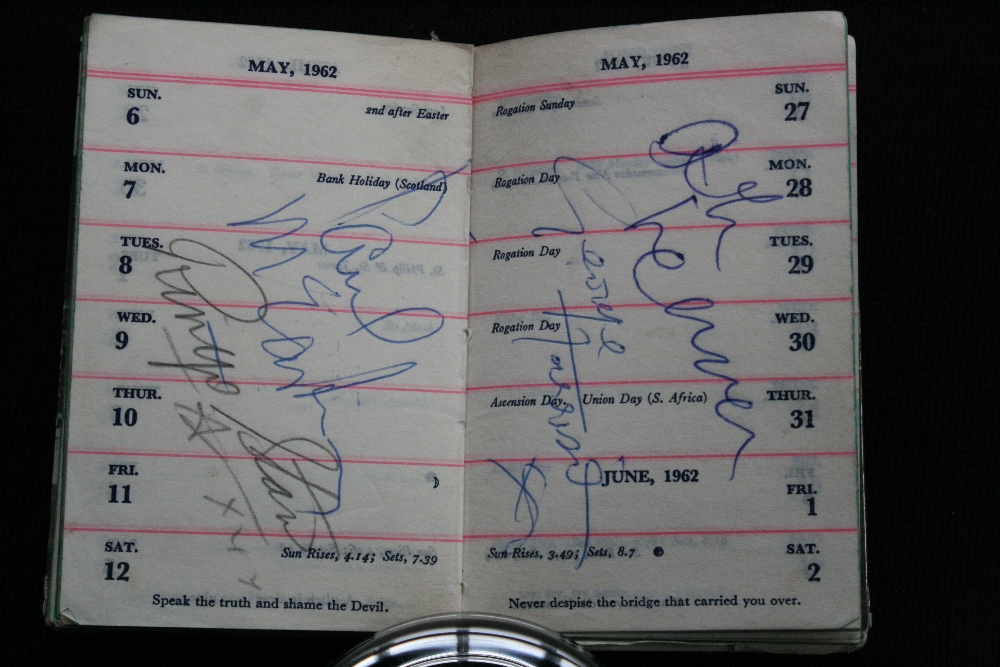 MAY, 1962
SUN.
6
2nd after Easter
MON.
7
Bank Holiday (Scotland)
TUES.
8
WED.
9
THUR.
10
FRI.
11
SAT.
12
Sun Rises, 4.14; Sets, 7.39
Speak the truth and shame the Devil.
Paul
McCartney
Ringo Starr
MAY, 1962
Rogation Sunday
SUN.
27
Rogation Day
MON.
28
Rogation Day
TUES.
29
Rogation Day
WED.
30
Ascension Day. Union Day (S. Africa)
THUR.
31
JUNE, 1962
FRI.
1
Sun Rises, 3.49; Sets, 8.7
SAT.
2
Never despise the bridge that carried you over.
George
Harrison
John
Lennon